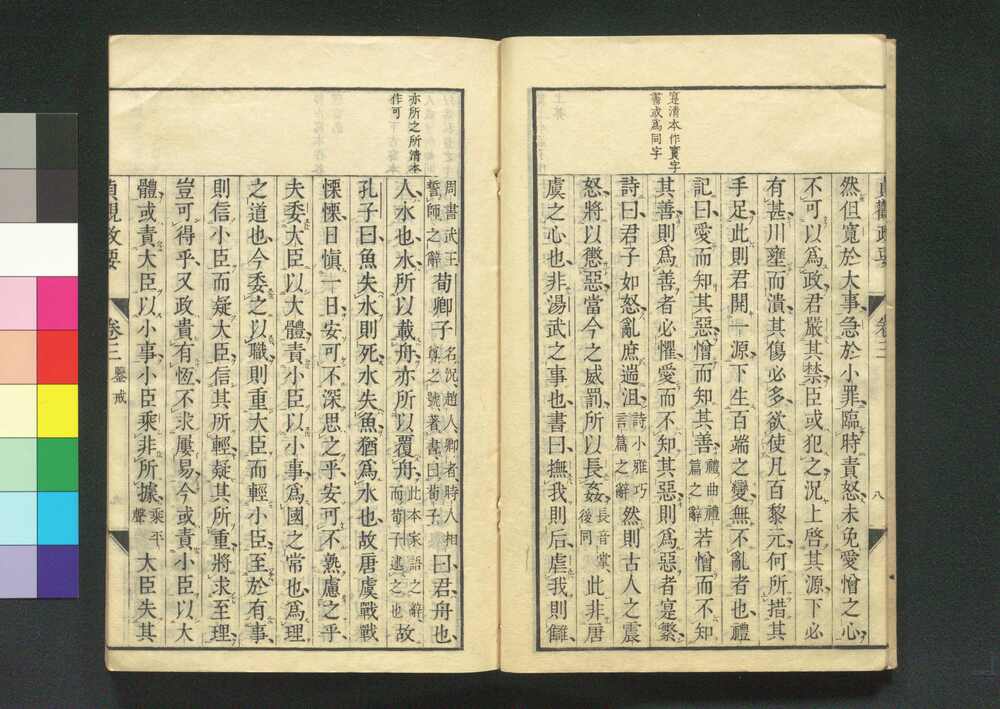 寔清本作實字
書或爲同字
然但寬於大事急於小罪臨時責怒未免愛憎之心
不可以爲政君嚴其禁臣或犯之況上啓其源下必
有甚川壅而潰其傷必多欲使凡百黎元何所措其
手足此則君開一源下生百端之變無不亂者也禮
記曰愛而知其惡憎而知其善禮曲禮篇之辭若憎而不知
其善則爲善者必懼愛而不知其惡則爲惡者寔繁
詩曰君子如怒亂庶遄沮詩小雅巧言篇之辭然則古人之震
怒將以懲惡當今之威罰所以長姦長音掌後同此非唐
虞之心也非湯武之事也書曰撫我則后虐我則讎
貞觀政要 卷三 八
亦所之所清本
作可
周書武王誓師之辭荀卿子名況趙人卿者時人相尊之號著書曰荀子曰君舟也
人水也水所以載舟亦所以覆舟此本家語之辭而荀子述之也故
孔子曰魚失水則死水失魚猶爲水也故唐虞戰戰
慄慄日愼一日安可不深思之乎安可不熟慮之乎
夫委大臣以大體責小臣以小事爲國之常也爲理
之道也今委之以職則重大臣而輕小臣至於有事
則信小臣而疑大臣信其所輕疑其所重將求至理
豈可得乎又政貴有恆不求屢易今或責小臣以大
體或責大臣以小事小臣乘非所據乘平聲大臣失其
貞觀政要 卷三 鑒戒